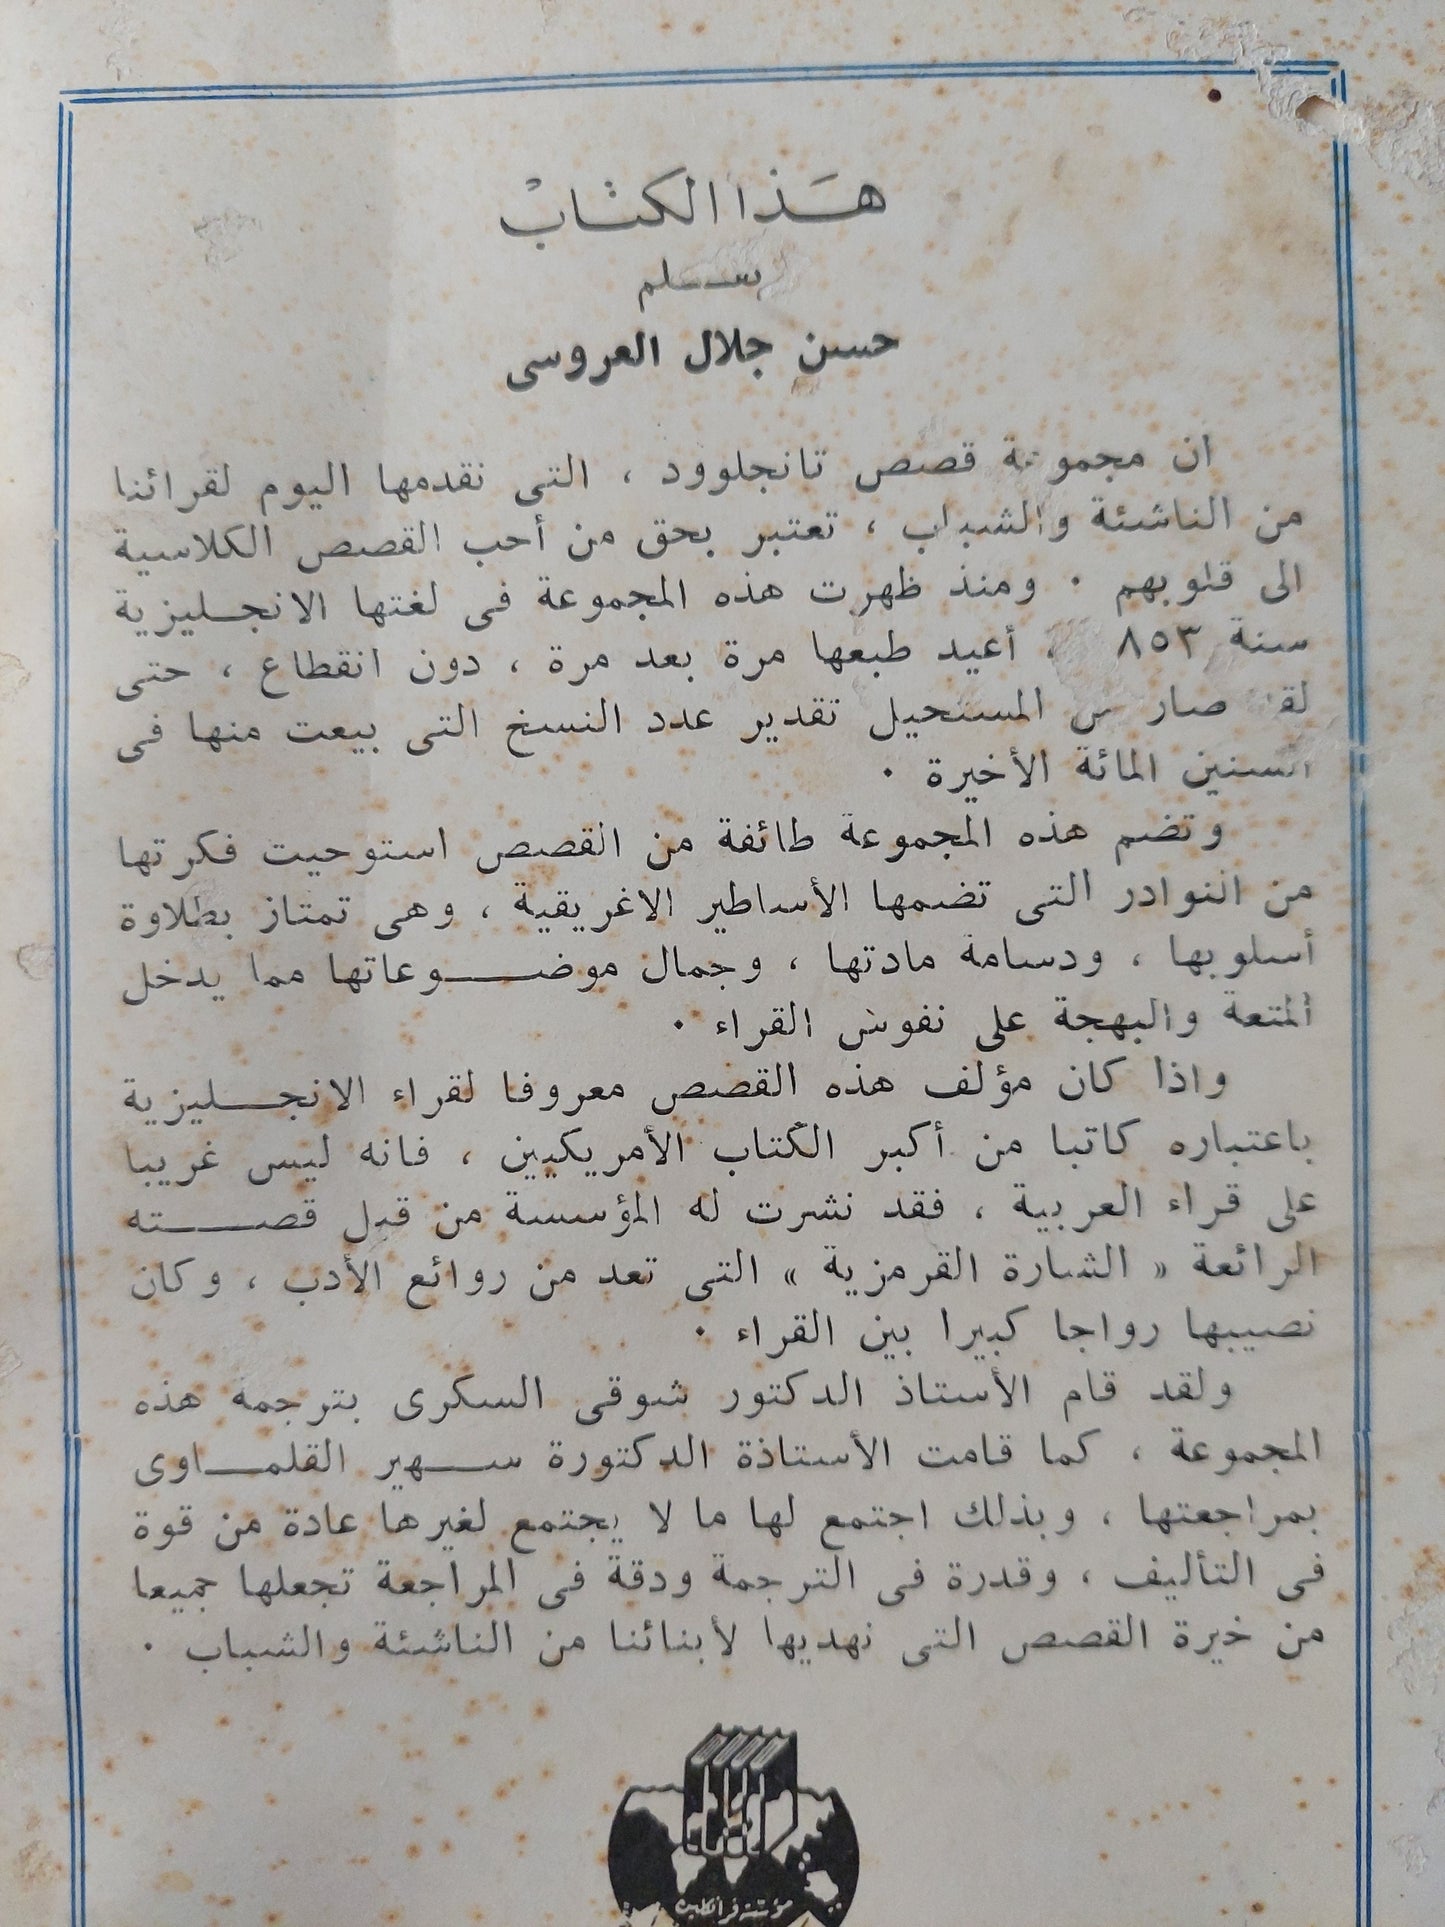 هَذا الكتابْ
حسن جلال العروسى
ان مجموعة قصص تانجلوود ، التى نقدمها اليوم لقرائنا
من الناشئة والشباب ، تعتبر بحق من أحب القصص الكلاسية
الى قلوبهم ٠ ومنذ ظهرت هذه المجموعة فى لغتها الانجليزية
سنة ٨٥٣ ، أعيد طبعها مرة بعد مرة ، دون انقطاع ، حتى
لقد صار من المستحيل تقدير عدد النسخ التى بيعت منها فى
السنين المائة الأخيرة ٠
وتضم هذه المجموعة طائفة من القصص استوحيت فكرتها
من النوادر التى تضمها الأساطير الاغريقية ، وهى تمتاز بطلاوة
أسلوبها ، ودسامة مادتها ، وجمال موضوعاتها مما يدخل
المتعة والبهجة على نفوس القراء ٠
واذا كان مؤلف هذه القصص معروفا لقراء الانجليزية
باعتباره كاتبا من أكبر الكتاب الأمريكيين ، فانه ليس غريبا
على قراء العربية ، فقد نشرت له المؤسسة من قبل قصته
الرائعة « الشارة القرمزية » التى تعد من روائع الأدب ، وكان
نصيبها رواجا كبيرا بين القراء ٠
ولقد قام الأستاذ الدكتور شوقى السكرى بترجمة هذه
المجموعة ، كما قامت الأستاذة الدكتورة سهير القلماوى
بمراجعتها ، وبذلك اجتمع لها ما لا يجتمع لغيرها عادة من قوة
فى التأليف ، وقدرة فى الترجمة ودقة فى المراجعة تجعلها جميعا
من خيرة القصص التى نهديها لأبنائنا من الناشئة والشباب ٠
مؤسسة فرانكلين